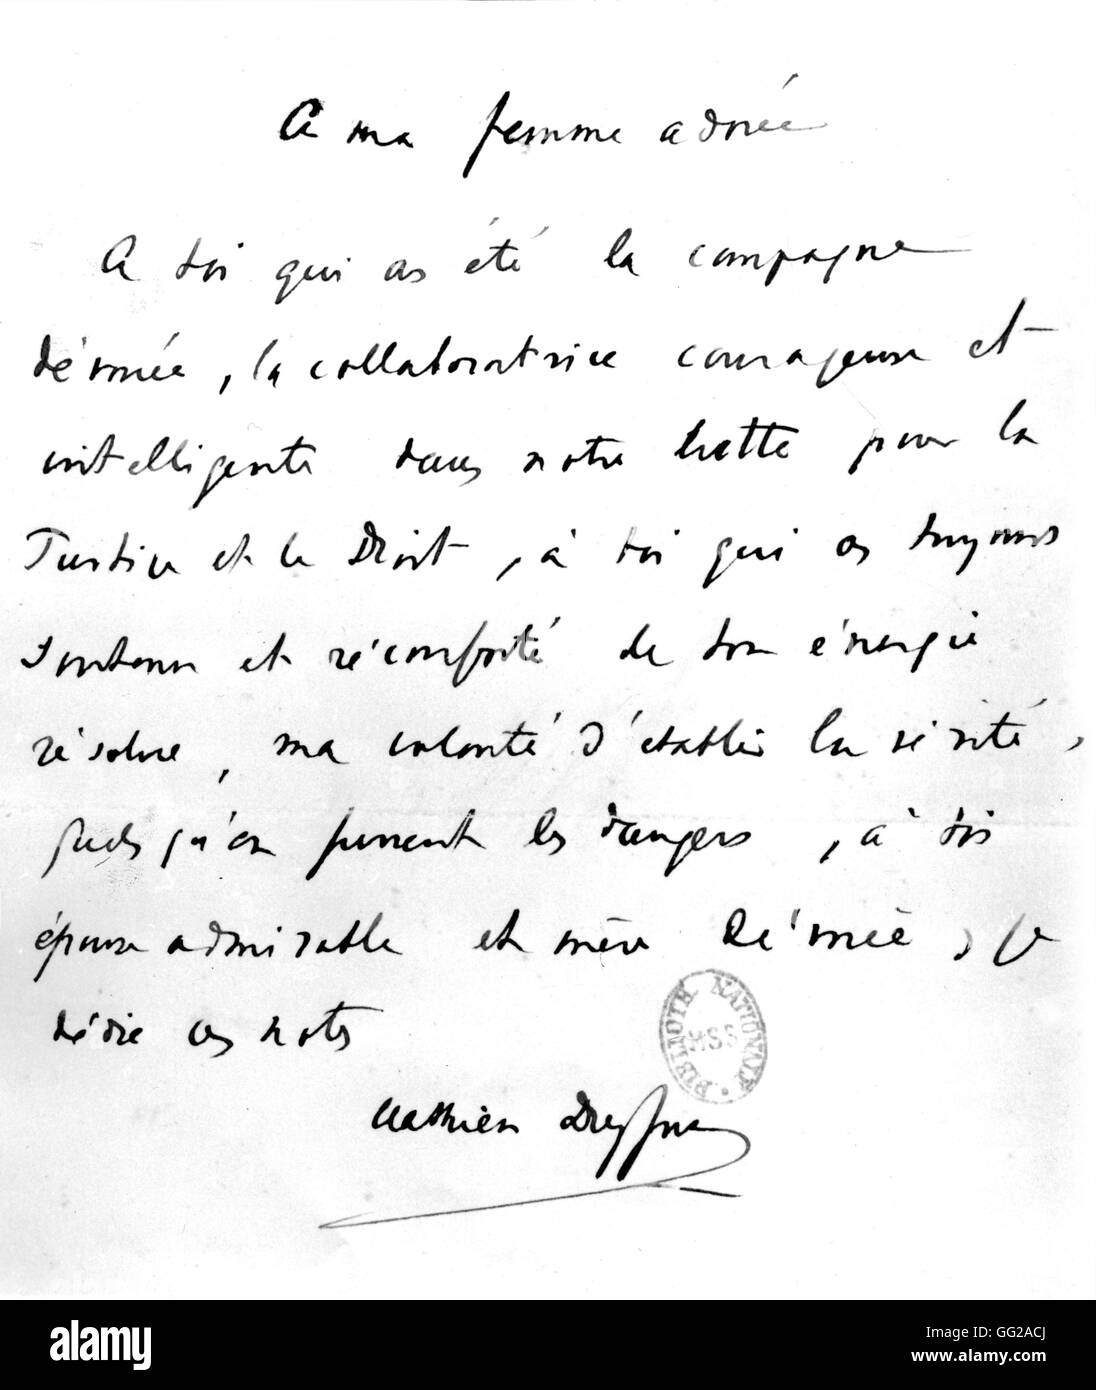 A ma femme adorée
A toi qui as été la compagne
dévouée, la collaboratrice courageuse et
intelligente dans notre lutte pour la
Justice et le Droit, à toi qui as toujours
soutenu et réconforté de ton énergie
résolue, ma volonté d'établir la vérité,
quels qu'en fussent les dangers, à toi
épouse admirable et mère dévouée, je
dédie ces notes
BIBLIOTH. NATIONALE
MSS
Mathieu Dreyfus
alamy
Image ID: GG2ACJ
www.alamy.com